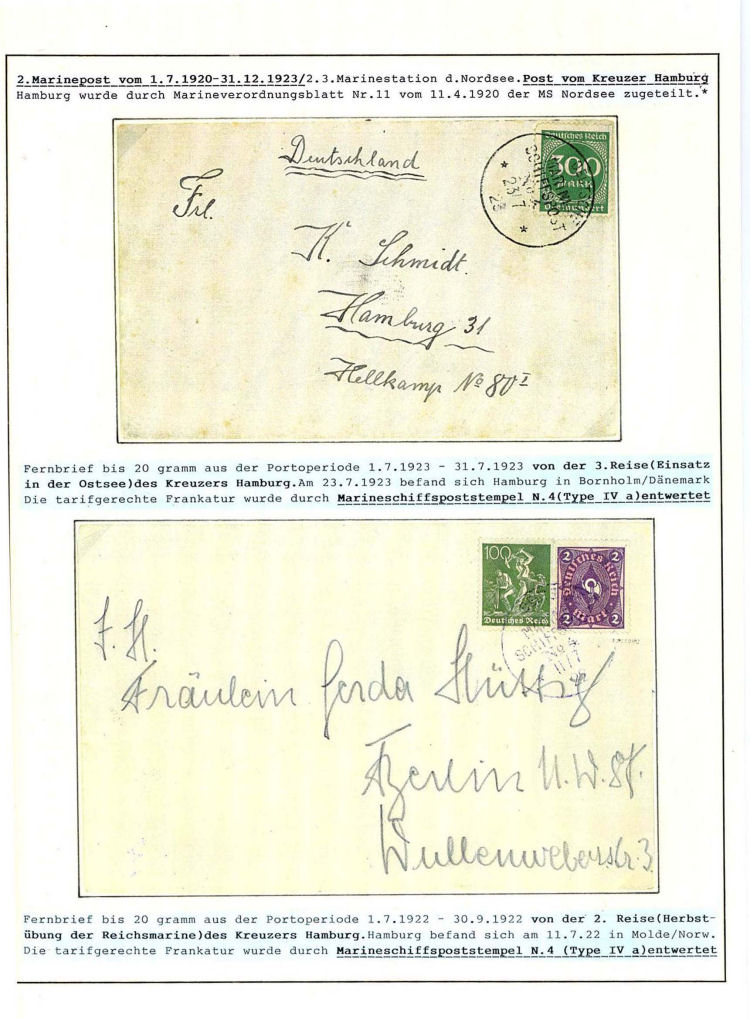 2.Marinepost vom 1.7.1920-31.12.1923/2.3.Marinestation d.Nordsee.Post vom Kreuzer Hamburg
Hamburg wurde durch Marineverordnungsblatt Nr.11 vom 11.4.1920 der MS Nordsee zugeteilt.*
Deutschland
Deutsches Reich
300
MARK
SCHIFFSPOST
No 4
23 7
23
Frl.
K. Schmidt.
Hamburg 31
Hellkamp No 80 I
Fernbrief bis 20 gramm aus der Portoperiode 1.7.1923 - 31.7.1923 von der 3.Reise(Einsatz
in der Ostsee)des Kreuzers Hamburg.Am 23.7.1923 befand sich Hamburg in Bornholm/Dänemark
Die tarifgerechte Frankatur wurde durch Marineschiffspoststempel N.4(Type IV a)entwertet
100
Deutsches Reich
2 2
Deutsches Reich
2 Mark 2
No 4
11 7
Fräulein Gerda
Berlin N.W. 87.
Wullenweberstr. 3
Fernbrief bis 20 gramm aus der Portoperiode 1.7.1922 - 30.9.1922 von der 2. Reise(Herbst-
übung der Reichsmarine)des Kreuzers Hamburg.Hamburg befand sich am 11.7.22 in Molde/Norw.
Die tarifgerechte Frankatur wurde durch Marineschiffspoststempel N.4 (Type IV a)entwertet